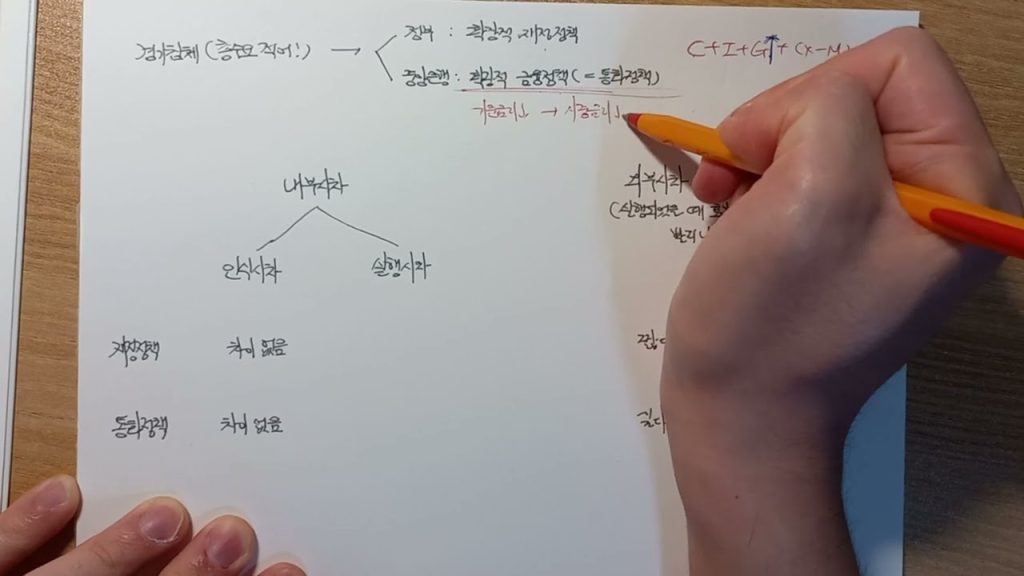 정부 : 확장적 재정정책
경기침체 (총수요 적어!) →
C+I+G↑+(X-M)
중앙은행 : 확장적 금융정책 (= 통화정책)
기준금리↓ → 시중금리↓
내부시차
외부시차
(실행되었을 때
빨리
인식시차
실행시차
재정정책
차이 없음
통화정책
차이 없음
길다